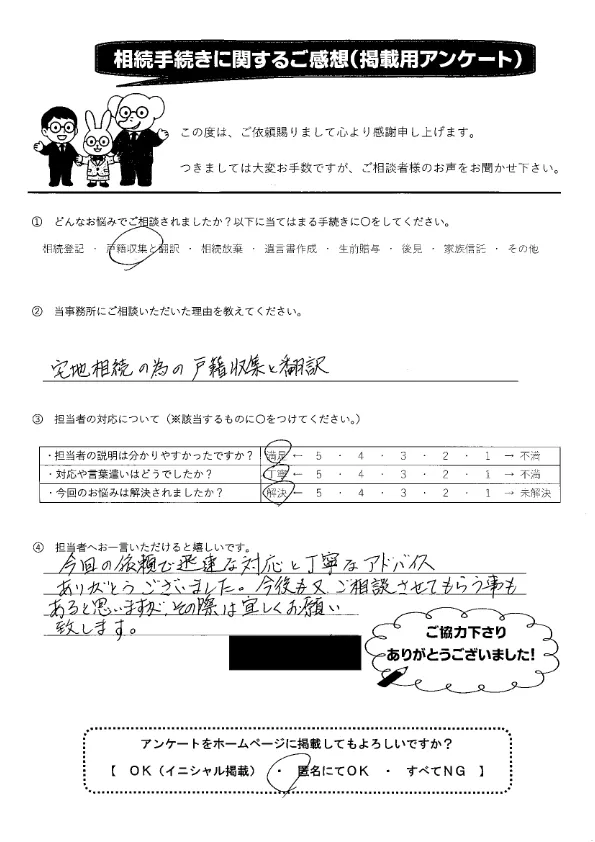 相続手続きに関するご感想(掲載用アンケート)
この度は、ご依頼賜りまして心より感謝申し上げます。
つきましては大変お手数ですが、ご相談者様のお声をお聞かせ下さい。
① どんなお悩みでご相談されましたか?以下に当てはまる手続きに〇をしてください。
相続登記 ・ 戸籍収集と翻訳 ・ 相続放棄 ・ 遺言書作成 ・ 生前贈与 ・ 後見 ・ 家族信託 ・ その他
② 当事務所にご相談いただいた理由を教えてください。
宅地相続の為の戸籍収集と翻訳
③ 担当者の対応について(※該当するものに〇をつけてください。)
・担当者の説明は分かりやすかったですか? 満足 ← 5 ・ 4 ・ 3 ・ 2 ・ 1 → 不満
・対応や言葉遣いはどうでしたか? 丁寧 ← 5 ・ 4 ・ 3 ・ 2 ・ 1 → 不満
・今回のお悩みは解決されましたか? 解決 ← 5 ・ 4 ・ 3 ・ 2 ・ 1 → 未解決
④ 担当者へお一言いただけると嬉しいです。
今回の依頼で迅速な対応と丁寧なアドバイス
ありがとうございました。今後も又ご相談させてもらう事も
あると思いますが、その際は宜しくお願い
致します。
ご協力下さり
ありがとうございました!
アンケートをホームページに掲載してもよろしいですか?
【 OK(イニシャル掲載) ・ 匿名にてOK ・ すべてNG 】